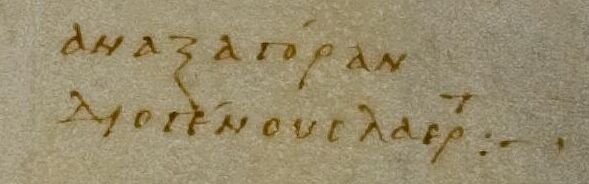 αναξαγόραν
Διογένους λαερτ:-